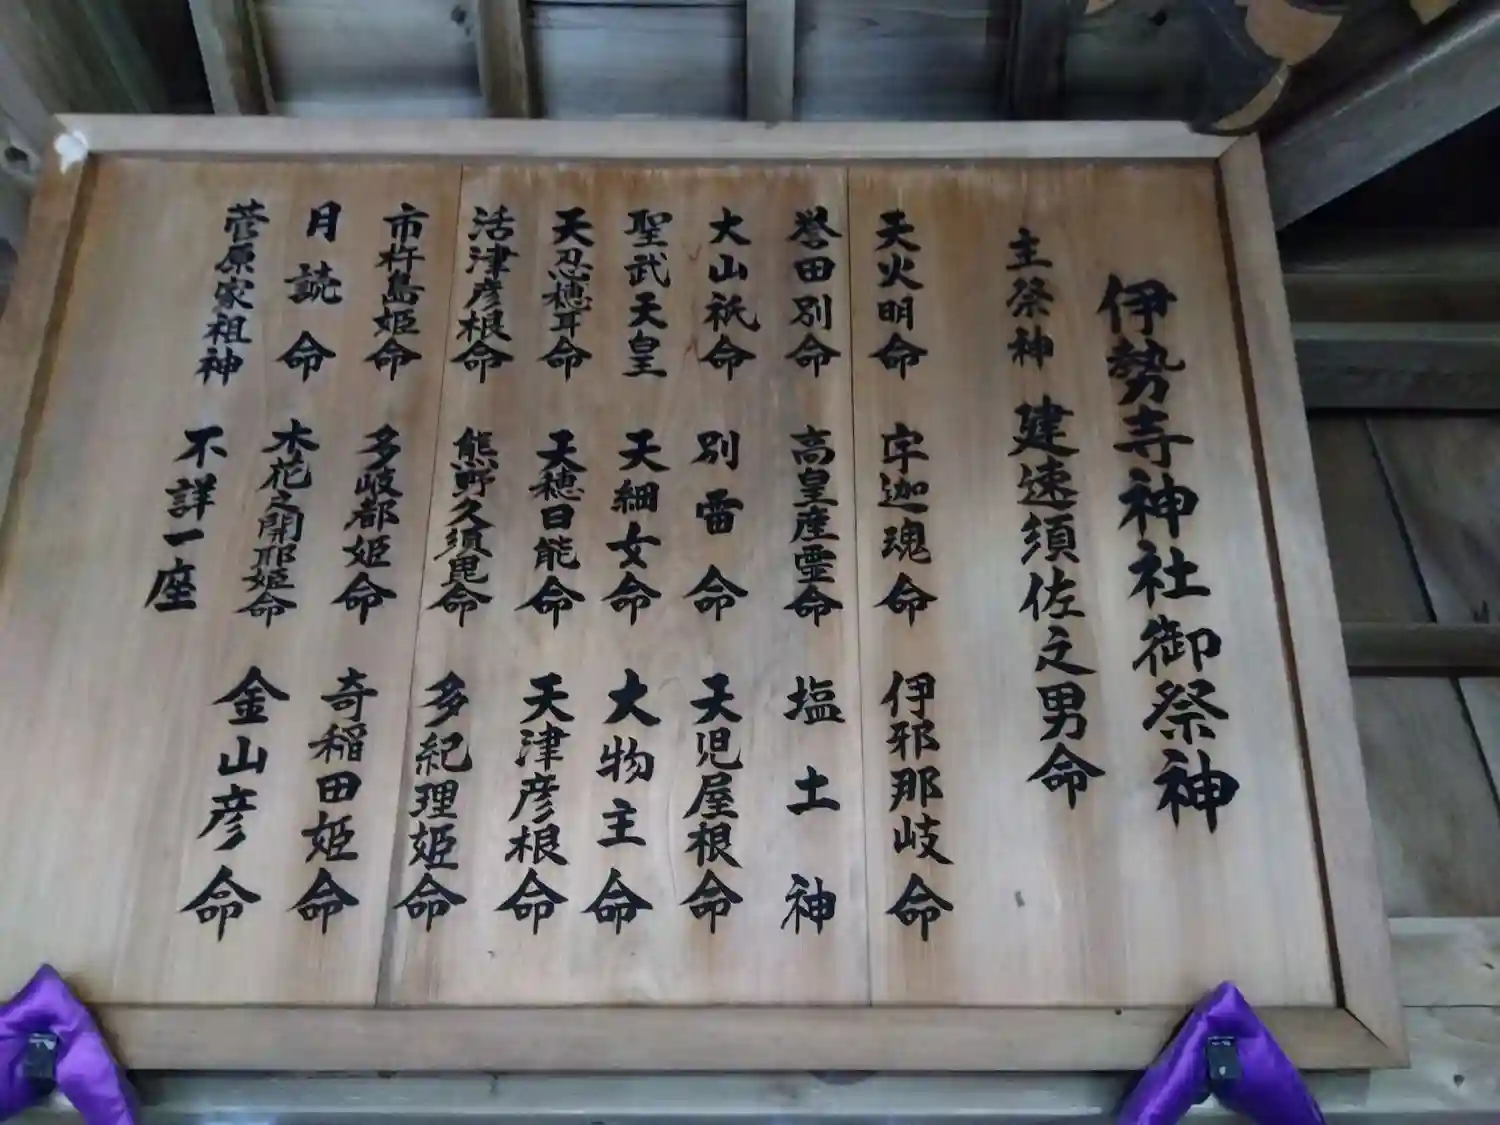 伊勢寺神社御祭神
主祭神 建速須佐之男命
天火明命 宇迦魂命 伊邪那岐命
誉田別命 高皇産霊命 塩土神
大山祇命 別雷命 天児屋根命
聖武天皇 天細女命 大物主命
天忍穂耳命 天穂日能命 天津彦根命
活津彦根命 熊野久須毘命 多紀理姫命
市杵島姫命 多岐都姫命 奇稲田姫命
月読命 木花之開耶姫命 金山彦命
菅原家祖神 不詳一座